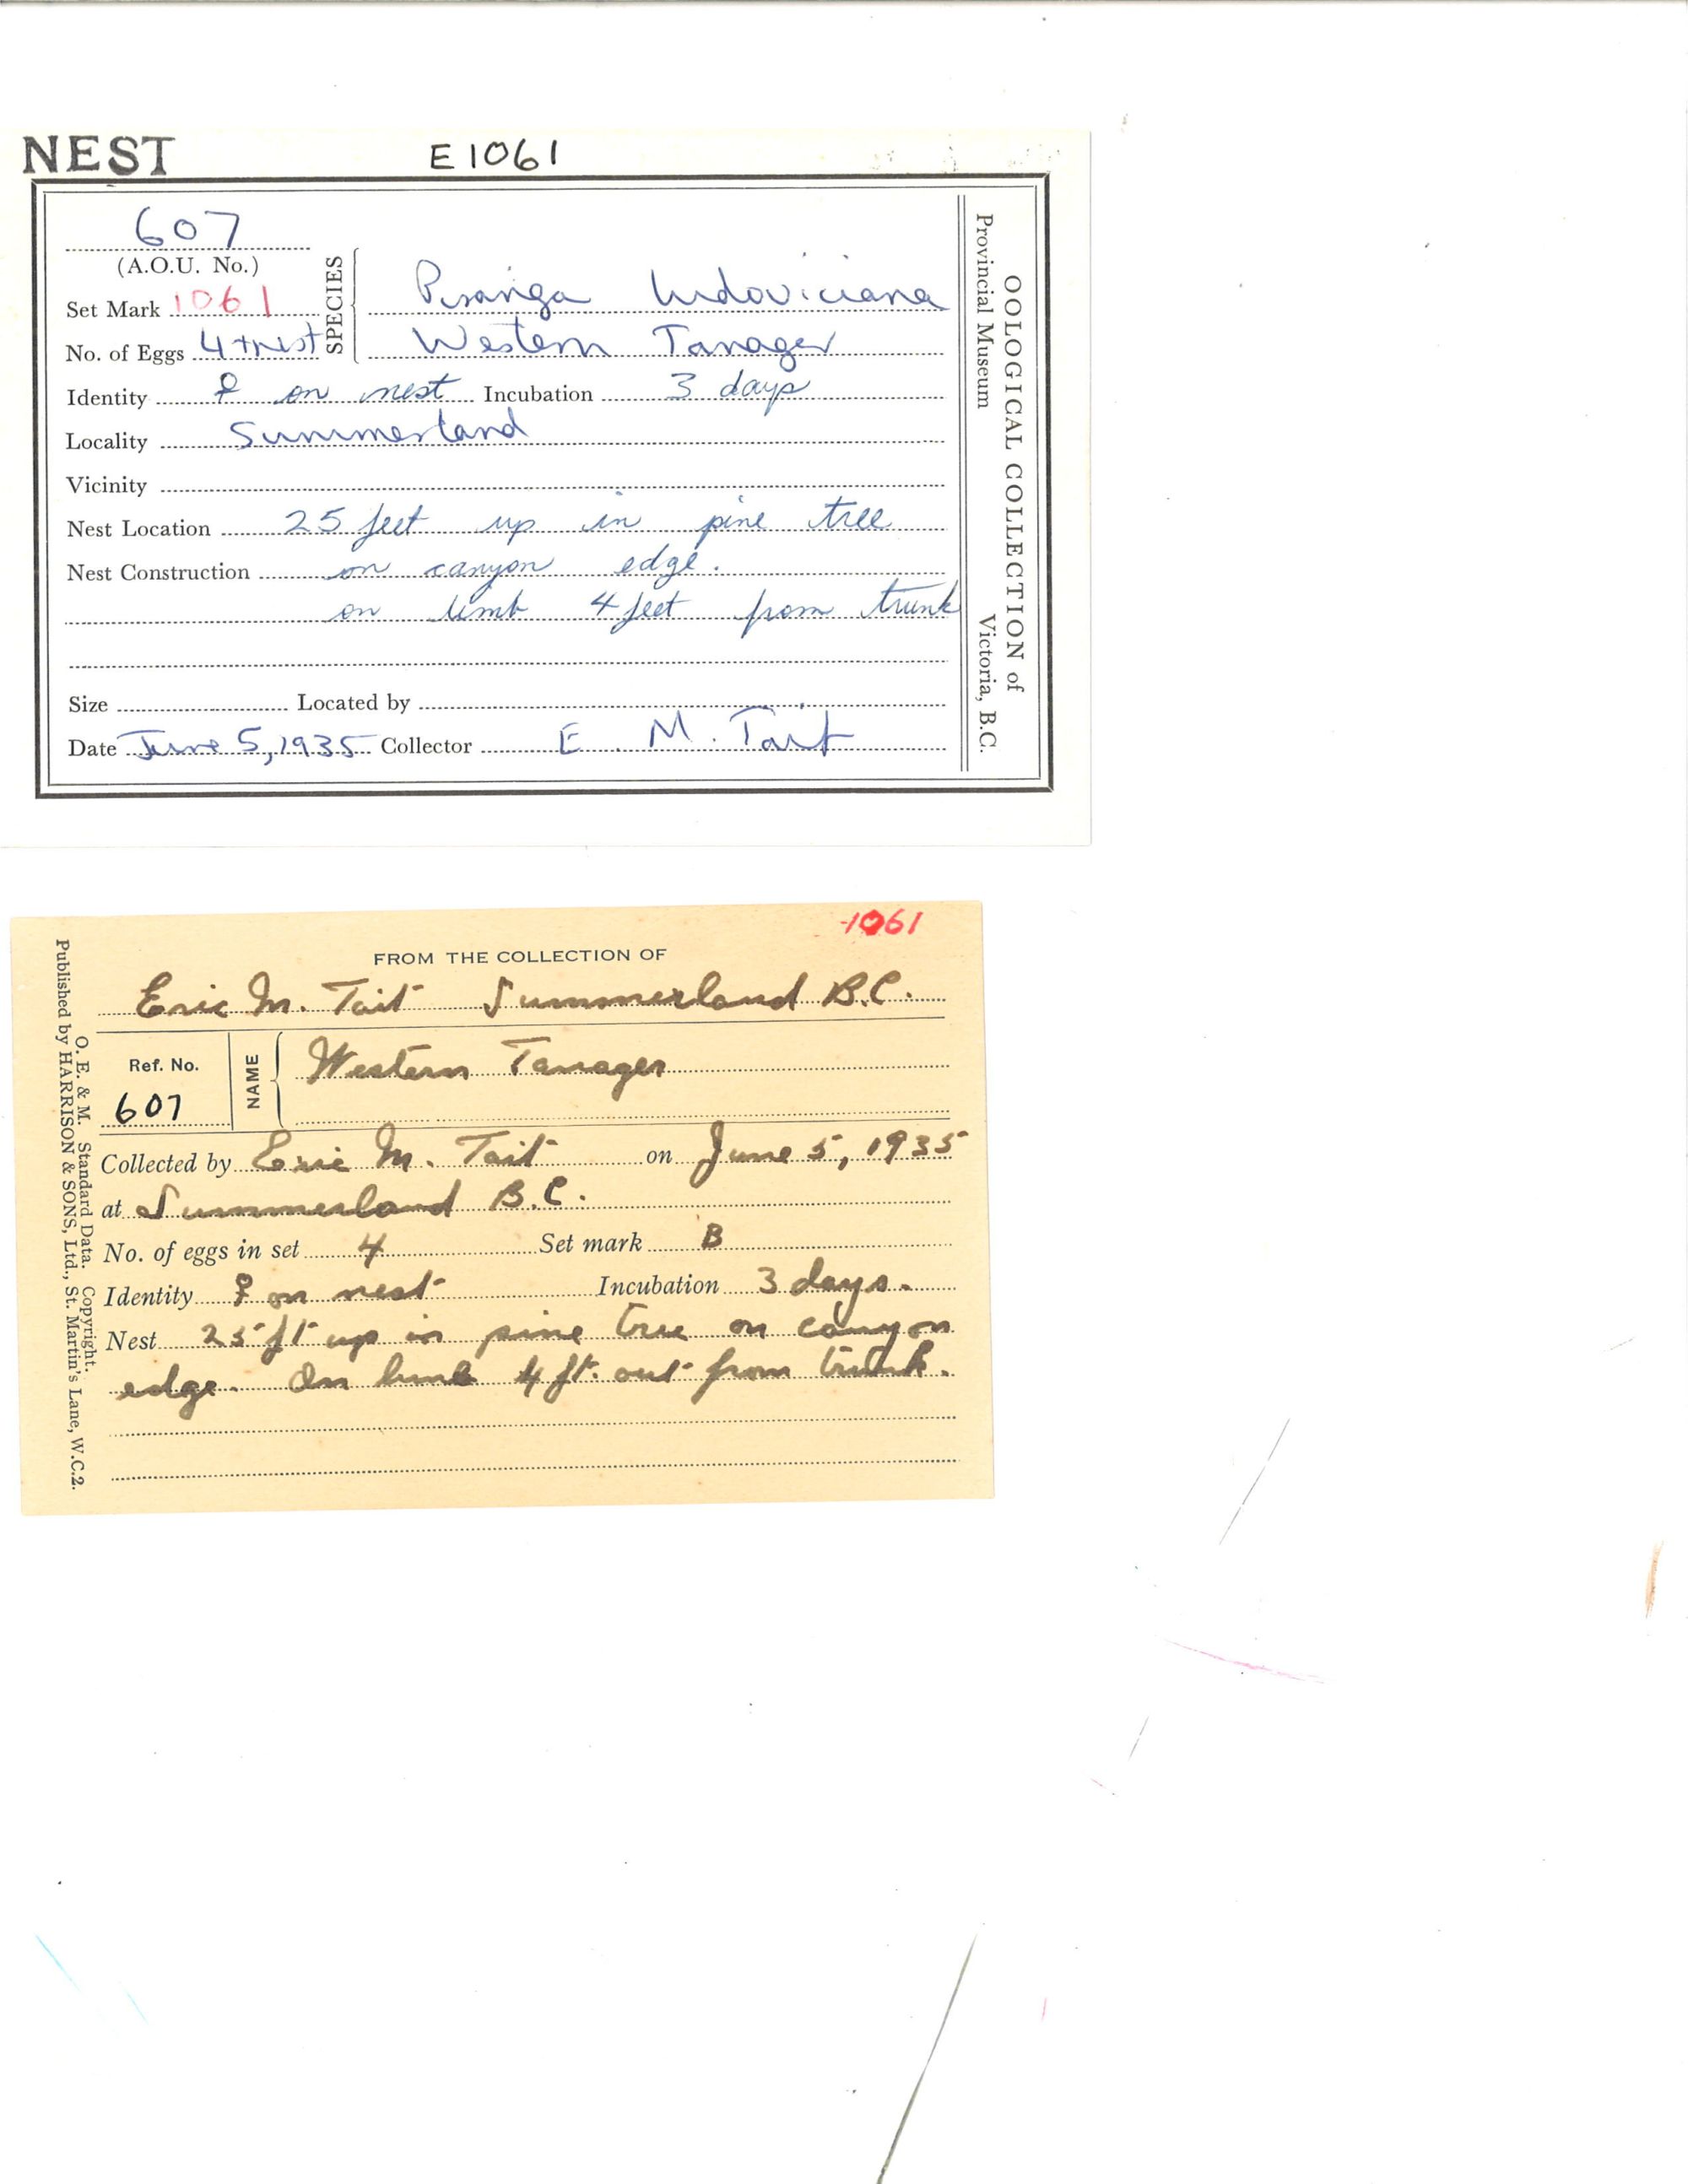 NEST E1061
607
(A.O.U. No.)
SPECIES
Piranga ludoviciana
Set Mark 1061
Western Tanager
No. of Eggs 4 + nest
Identity ♀ on nest Incubation 3 days
Locality Summerland
Vicinity
Nest Location 25 feet up in pine tree
Nest Construction on canyon edge.
on limb 4 feet from trunk
Size Located by
Date June 5, 1935 Collector E. M. Tait
OOLOGICAL COLLECTION of
Provincial Museum Victoria, B.C.
1061
FROM THE COLLECTION OF
Eric M. Tait Summerland B.C.
Ref. No.
607
NAME
Western Tanager
Collected by Eric M. Tait on June 5, 1935
at Summerland B.C.
No. of eggs in set 4 Set mark B
Identity ♀ on nest Incubation 3 days.
Nest 25 ft up in pine tree on canyon
edge. On limb 4 ft. out from trunk.
O. E. & M. Standard Data. Copyright.
Published by HARRISON & SONS, Ltd., St. Martin's Lane, W.C.2.